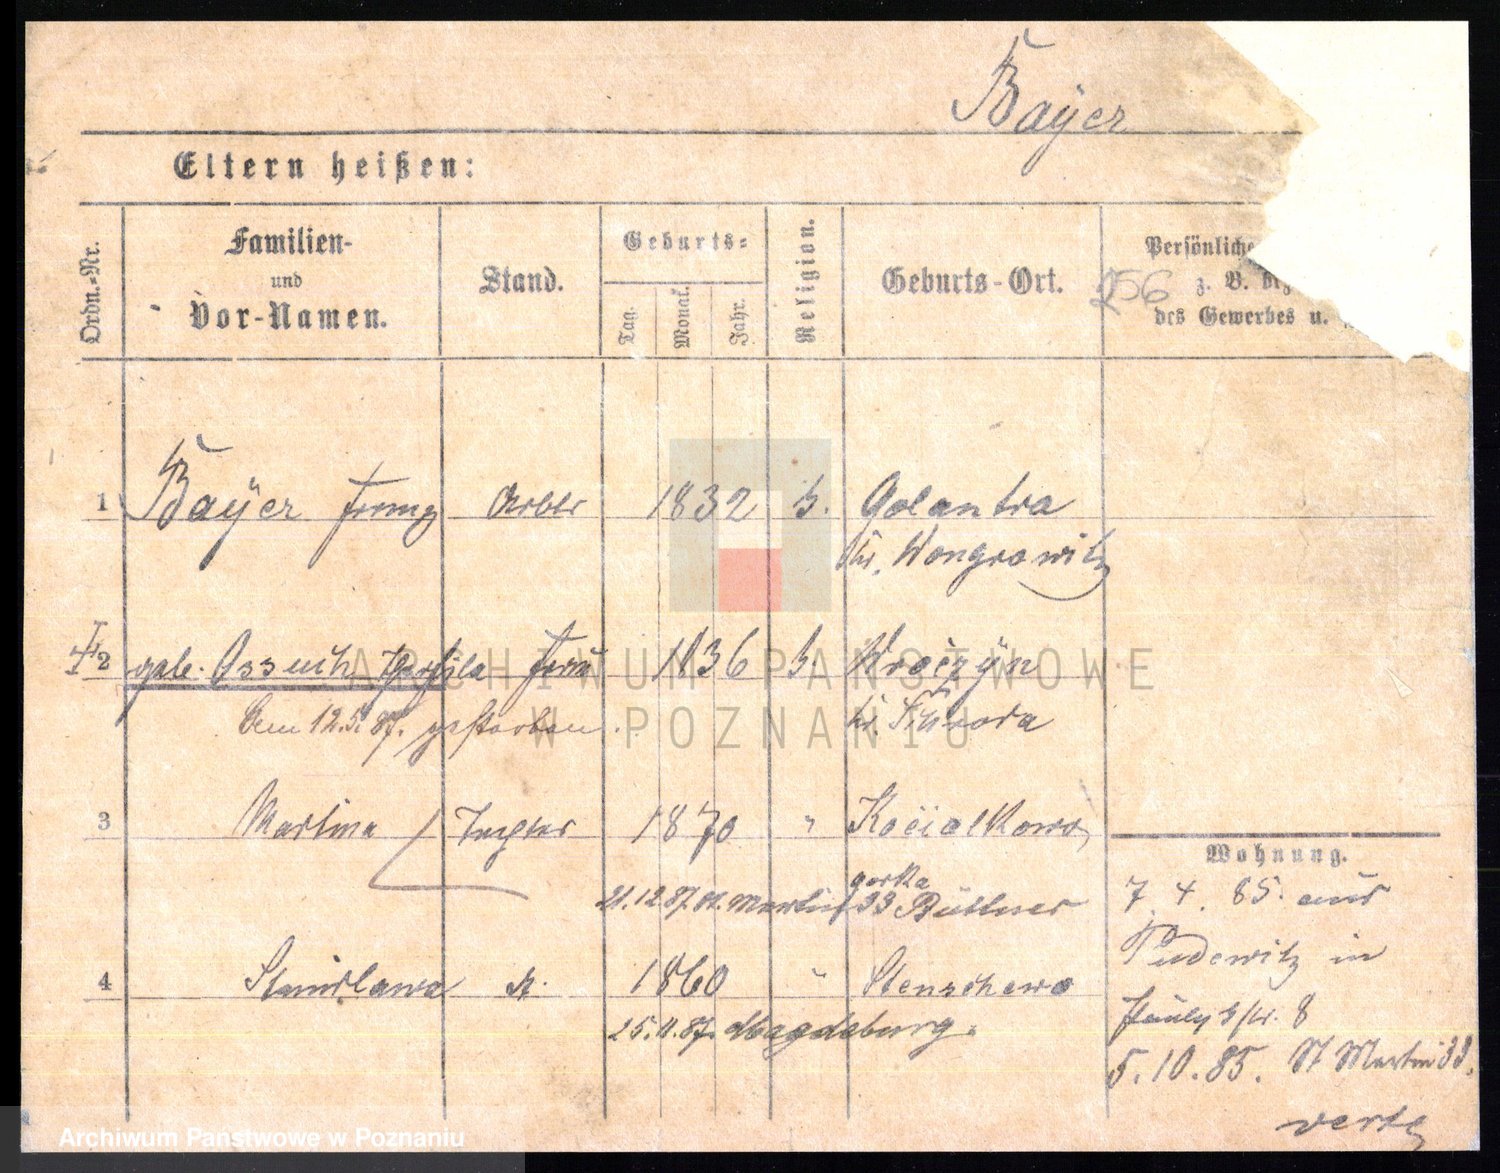 Bayer
Eltern heißen:
Ordn.-Nr.
Familien-
und
Vor-Namen.
Stand.
Geburts-
Tag.
Monat.
Jahr.
Religion.
Geburts-Ort.
Persönliche
z. B. bez
des Gewerbes u.
256
1 Bayer Franz Arbtr 1832 k. Golantra
Kr. Wongrowitz
2 geb. Frau 1836 k. Kroczyn
Dem 12.5.87. gestorben.
Kr. Szroda
3 Martina Tochter 1870 " Kocialkowo
gorka
21.12.87. St. Martin 33 Büttner
4 Stanislawa dt. 1860 " Stenschewo
25.11.87. Magdeburg.
Wohnung.
7. 4. 85. aus
Pudewitz in
8
5. 10. 85. St Martin 33.
verte
ARCHIWUM PAŃSTWOWE
W POZNANIU
Archiwum Państwowe w Poznaniu